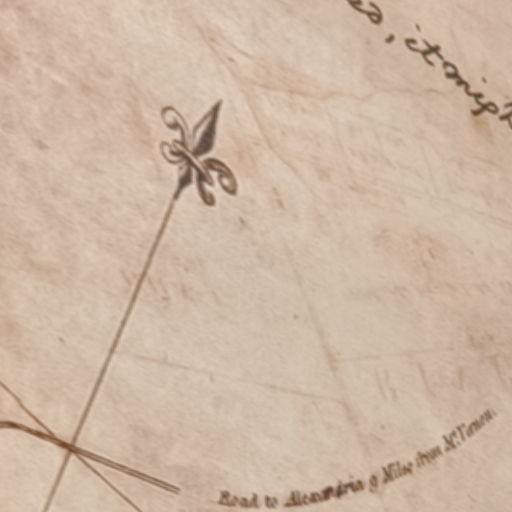 , it migh
Road to Alexandria 9 Miles from Mt. Vernon.